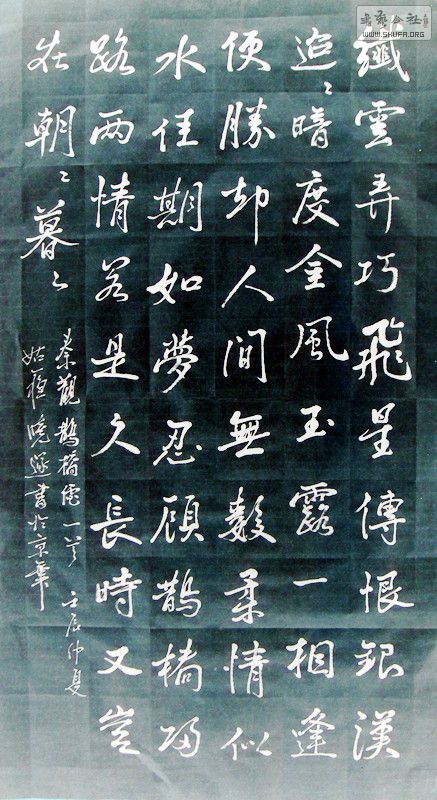 書藝公社
WWW.SHUFA.ORG
纖雲弄巧飛星傳恨銀漢
迢〻暗度金風玉露一相逢
便勝却人間無數柔情似
水佳期如夢忍顧鵲橋歸
路兩情若是久長時又豈
在朝〻暮〻
秦觀鵲橋僊一首 壬辰仲夏
姑蘇曉書於京華